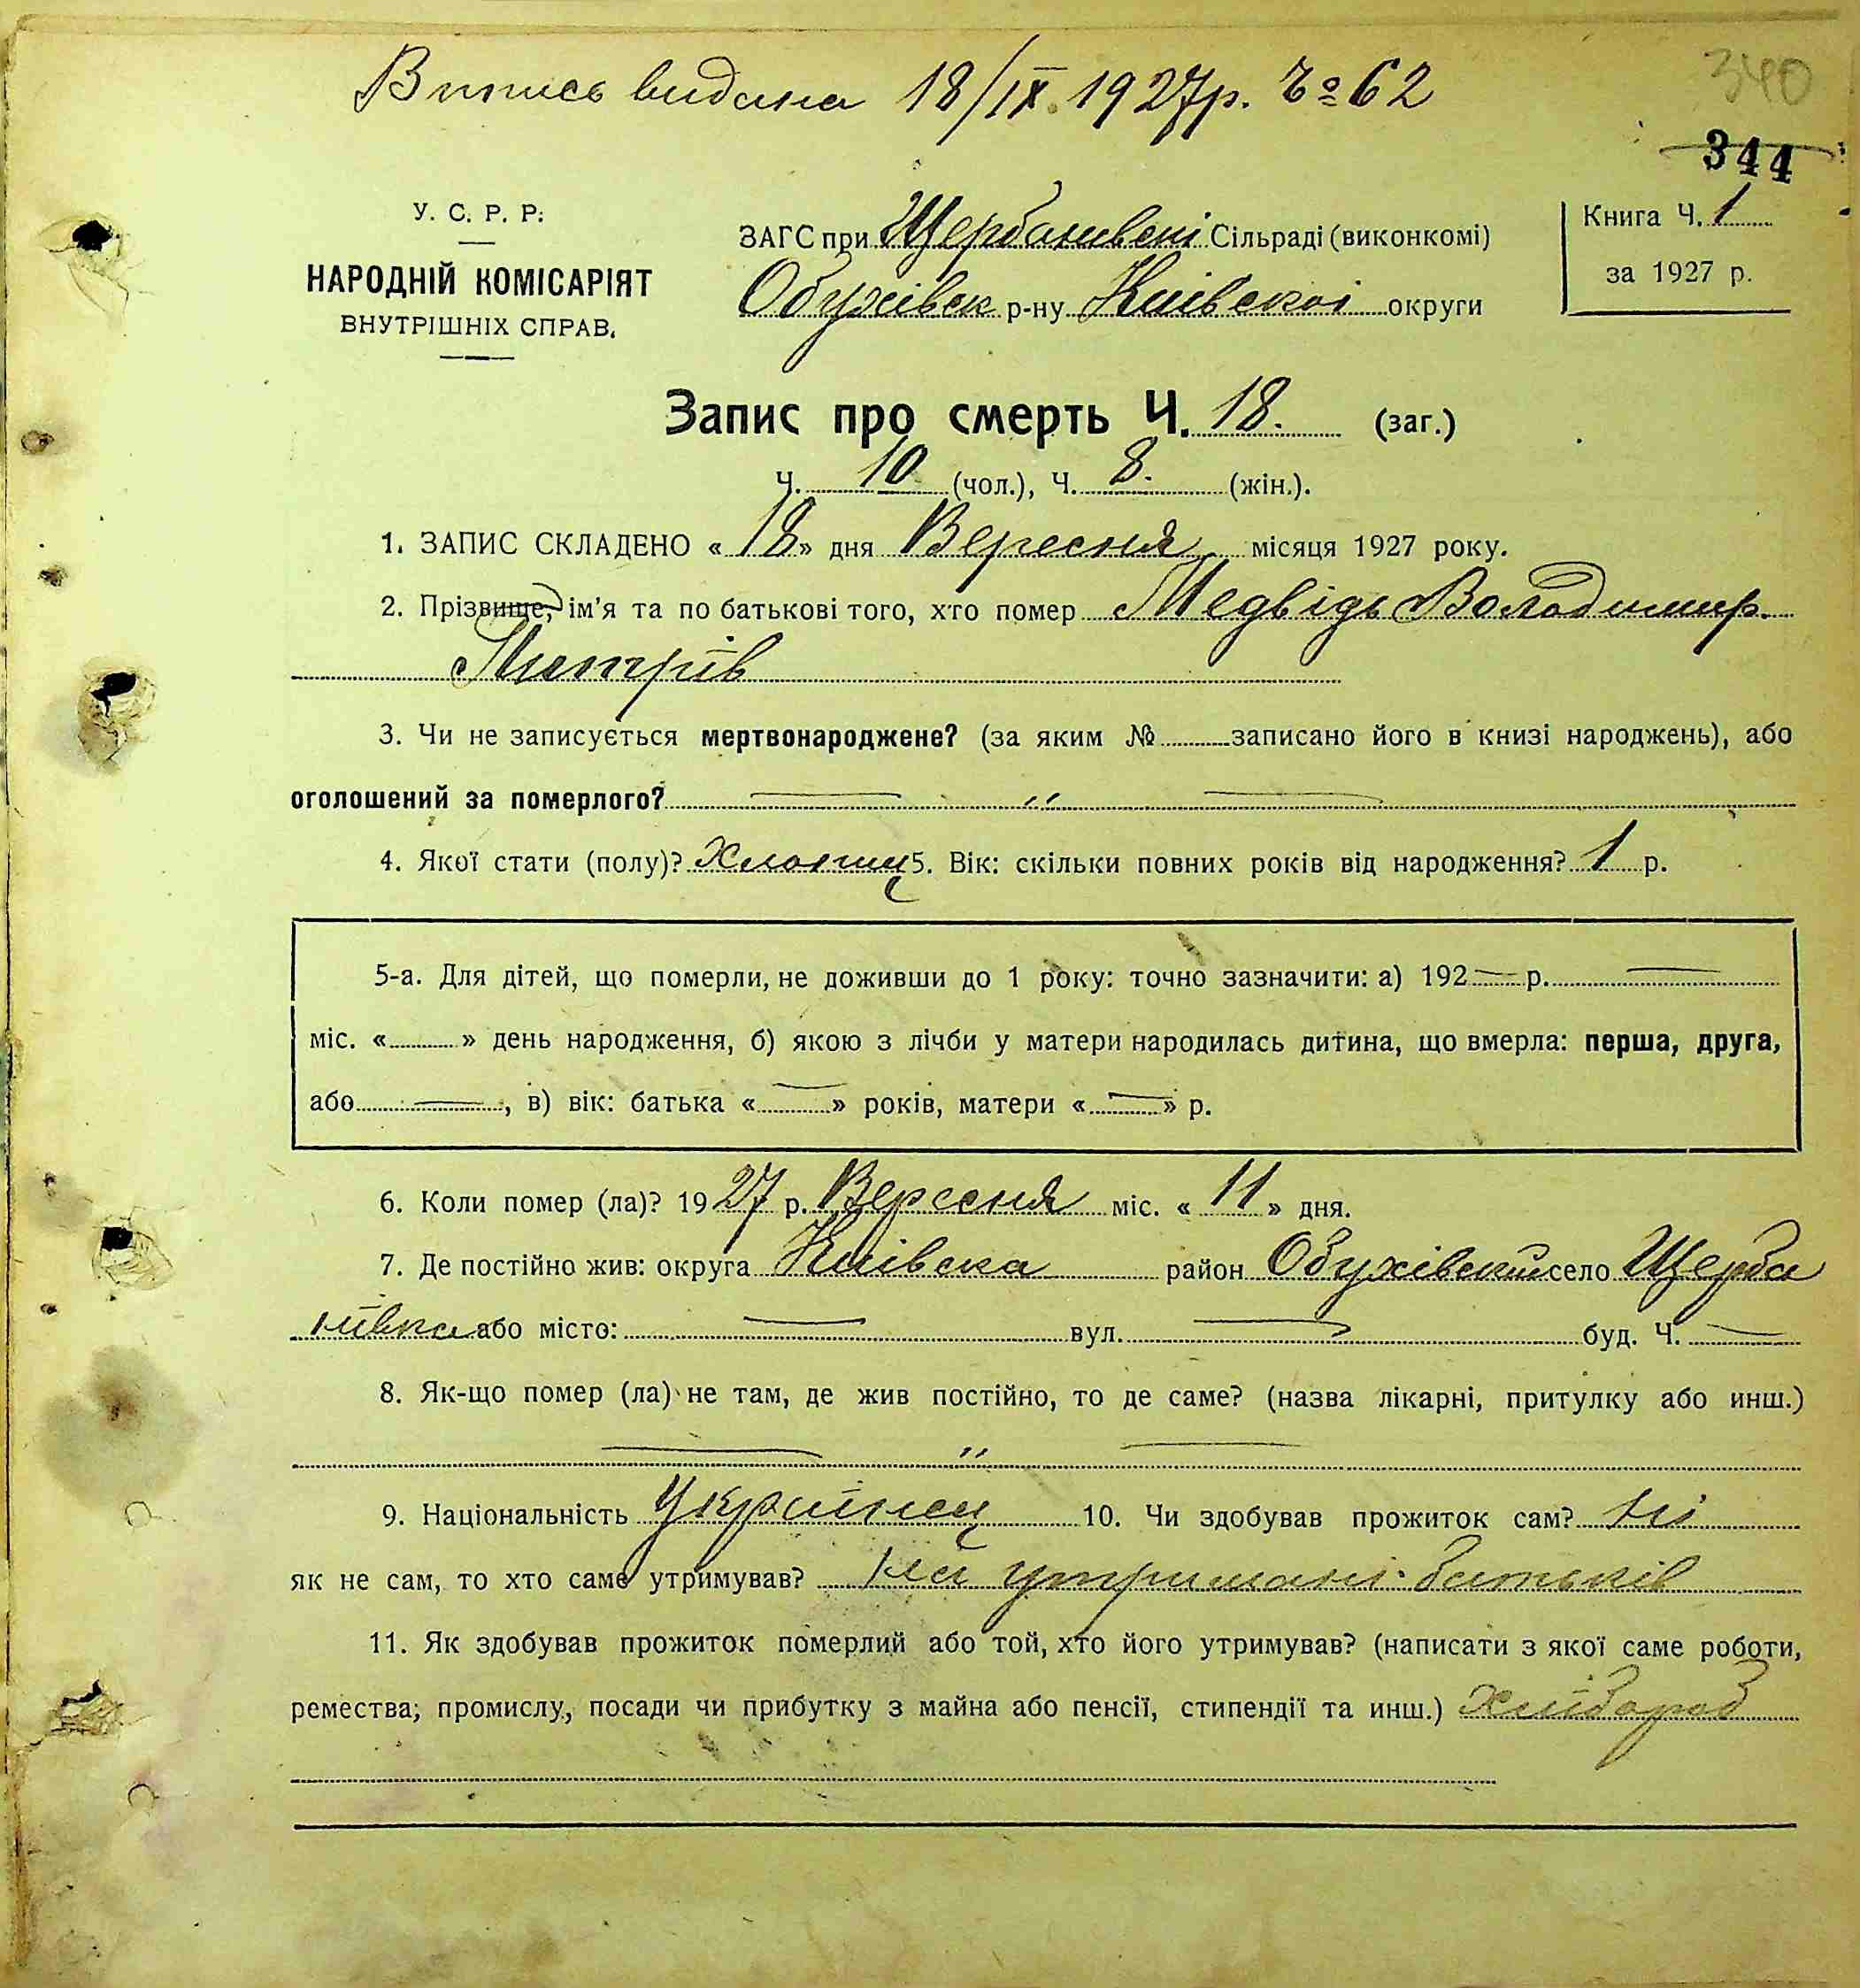 Випись видана 18/IX 1927р. № 62
340
344
У. С. Р. Р.
НАРОДНІЙ КОМІСАРІЯТ
ВНУТРІШНІХ СПРАВ.
ЗАГС при Щербанивсні Сільраді (виконкомі)
Обухівск р-ну Київскоі округи
Книга Ч. 1
за 1927 р.
Запис про смерть Ч. 18. (заг.)
Ч. 10 (чол.), Ч. 8. (жін.).
1. ЗАПИС СКЛАДЕНО « 18 » дня Вересня місяця 1927 року.
2. Прізвище, ім'я та по батькові того, хто помер Медвідь Володимир.
Митрів
3. Чи не записується мертвонароджене? (за яким № записано його в книзі народжень), або
оголошений за померлого? — „ —
4. Якої стати (полу)? Хлопець 5. Вік: скільки повних років від народження? 1 р.
5-а. Для дітей, що померли, не доживши до 1 року: точно зазначити: а) 192— р. —
міс. « » день народження, б) якою з лічби у матери народилась дитина, що вмерла: перша, друга,
або —, в) вік: батька « — » років, матери « — » р.
6. Коли помер (ла)? 1927 р. Вересня міс. « 11 » дня.
7. Де постійно жив: округа Київска район Обухівский село Щерба
нівка або місто: — вул. — буд. Ч. —
8. Як-що помер (ла) не там, де жив постійно, то де саме? (назва лікарні, притулку або инш.)
— „ —
9. Національність Українец 10. Чи здобував прожиток сам? ні
як не сам, то хто саме утримував? на утримані батьків
11. Як здобував прожиток померлий або той, хто його утримував? (написати з якої саме роботи,
ремества; промислу, посади чи прибутку з майна або пенсії, стипендії та инш.) хлібороб